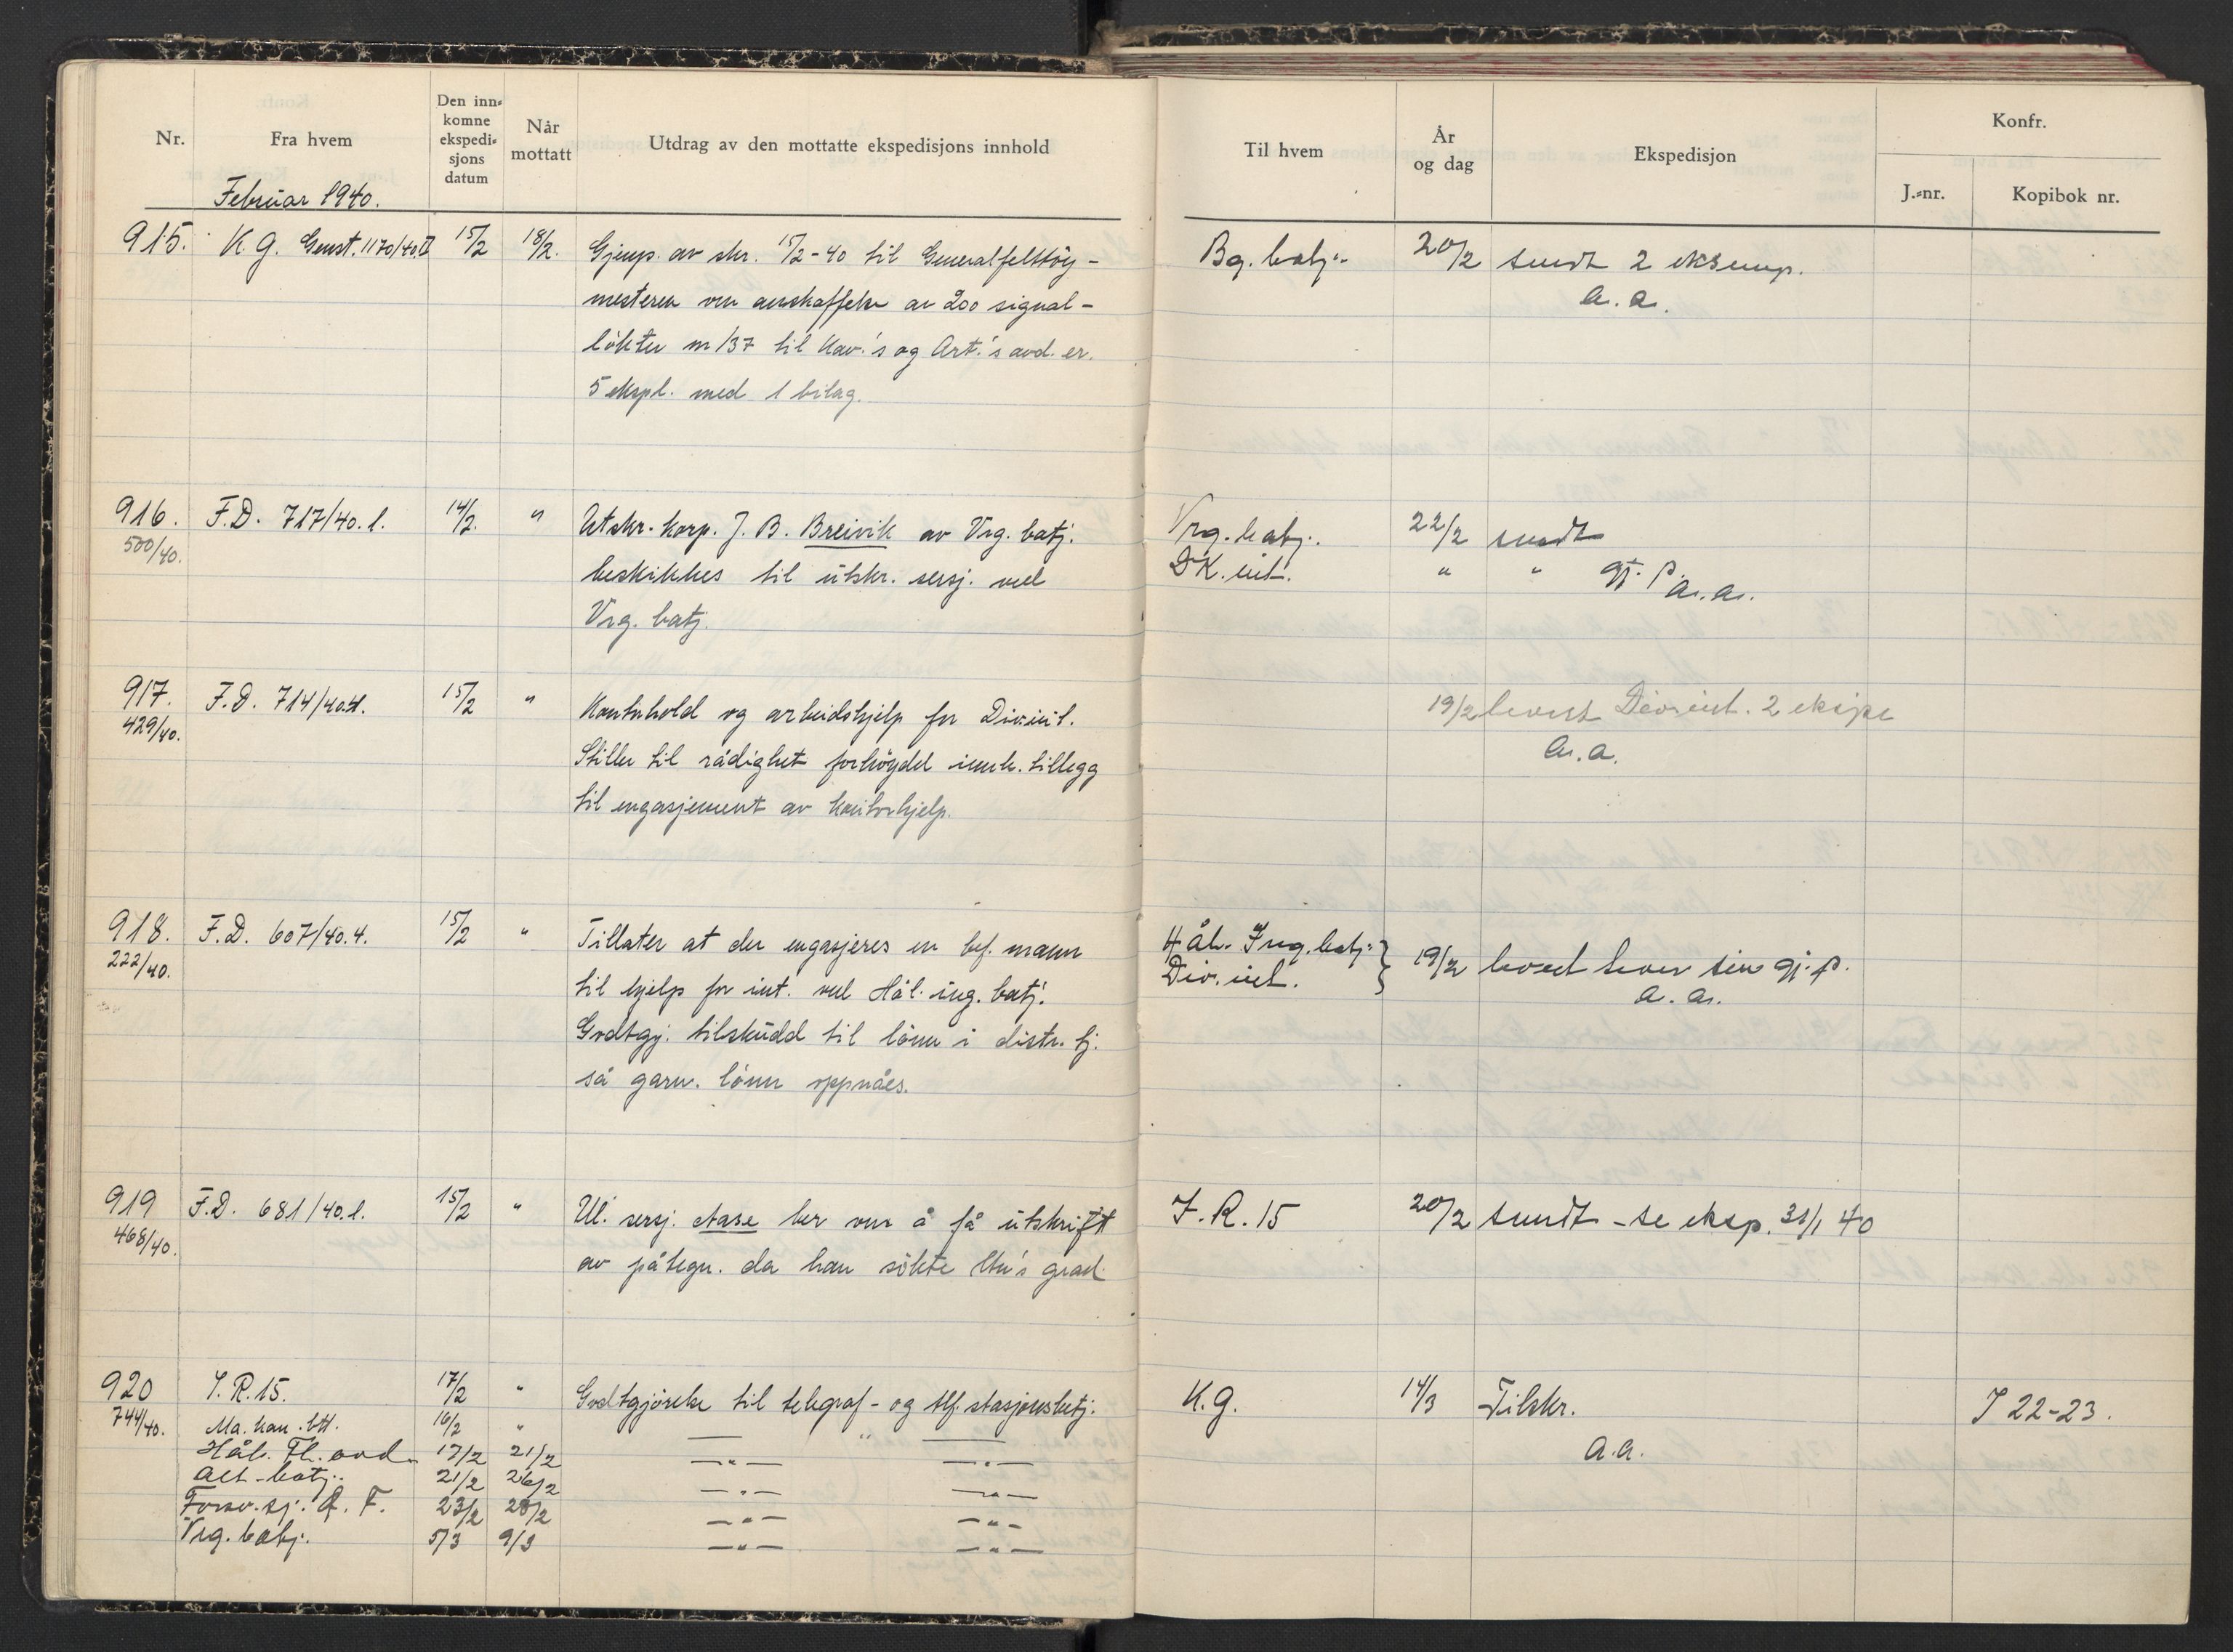 Nr.
Fra hvem
Den inn-
komne
ekspedi-
sjons
datum
Når
mottatt
Utdrag av den mottatte ekspedisjons innhold
Februar 1940.
915. K.G. Genst. 1170/40.II 15/2 18/2. Gjenp. av skr. 15/2-40 til Generalfelttøy-
mesteren om anskaffelse av 200 signal-
løkter m/37 til Kav.'s og Art.'s avd. er.
5 ekspl. med 1 bilag.
916. F.D. 717/40.1. 14/2. " Utskr. korp. J. B. Breivik av Vrg. batj.
500/40.
beskikkes til utskr. sersj. ved
Vrg. batj.
917. F.D. 714/40.4. 15/2 " Kontorhold og arbeidshjelp for Div.int.
429/40.
Stiller til rådighet forhøydet innk. tillegg
til engasjement av kontorhjelp.
918. F.D. 607/40.4. 15/2 " Tillater at der engasjeres en bef. mann
222/40.
til hjelp for int. ved Hål. ing. batj.
Godtgj. tilskudd til lønn i distr. tj.
så garn. lønn oppnåes.
919 F.D. 681/40.1. 15/2 " Ul. sersj. Aase ber om å få utskrift
468/40.
av påtegn. da han søkte ltn's grad.
920 I.R. 15. 17/2 " Godtgjørelse til telegraf- og tlf. stasjonsbetj.
744/40. Ma. kan. btt. 16/2 " — " —
Hål. Fl. avd. 17/2 21/2 — " — — " —
Alt. batj. 21/2 26/2 — " — — " —
Forsv. sj. Ø. F. 23/2 28/2 — " — — " —
Vrg. batj. 5/3 9/3 — " — — " —
Til hvem
År
og dag
Ekspedisjon
Konfr.
J.-nr.
Kopibok nr.
Bg. batj. 20/2 sendt 2 eksemp.
a.a.
Vrg. batj. 22/2 sendt
DK. int. " " gj. p.
a.a.
19/2 levert Div.int. 2 ekspl
a.a.
Hål. Ing. batj. } 19/2 hver sin gj. p.
Div. int.
a.a.
I.R. 15 20/2 sendt - se eksp. 31/1 40
K.G. 14/3 Tilskr. I 22-23.
a.a.